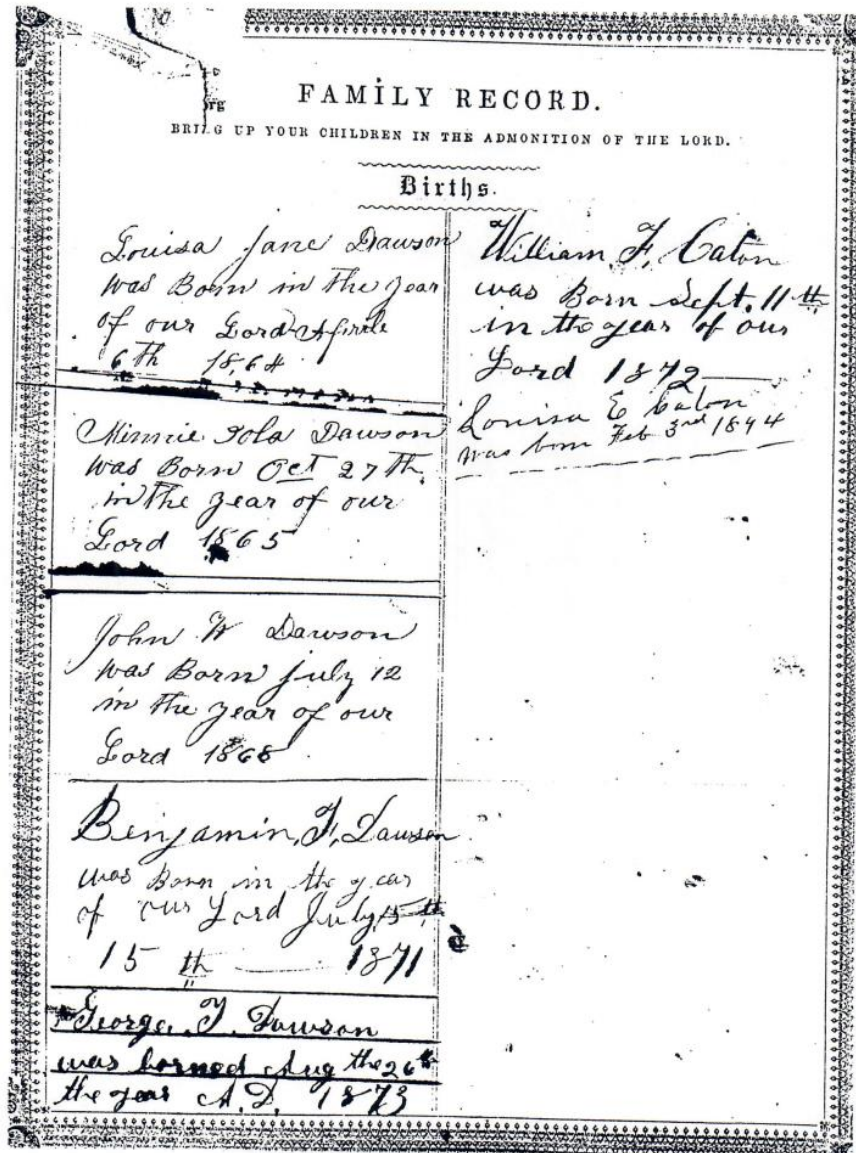 10
org
FAMILY RECORD.
BRING UP YOUR CHILDREN IN THE ADMONITION OF THE LORD.
Births.
Louisa Jane Dawson
was Born in the year
of our Lord Aprile
6th 18,64
Minnie Iola Dawson
was Born Oct 27th
in the year of our
Lord 1865
John W Dawson
was Born July 12
in the year of our
Lord 1868
Benjamin, F, Dawson
was Born in the year
of our Lord July, 15th
15 th — 1871
George, T. Dawson
was borned Aug the 26th
the year A.D. 1873
William, F, Eaton
was Born Sept. 11th
in the year of our
Lord 1872
Louisa E Eaton
was born Feb 3rd 1894